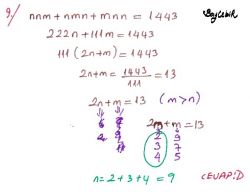 9/ nnm + nmn + mnn = 1443
222n + 111m = 1443
111 (2n+m) = 1443
2n+m = 1443/111 = 13
2n+m = 13 (m>n)
2n+m = 13
2 9
3 7
4 5
n = 2+3+4 = 9
CEVAP:D